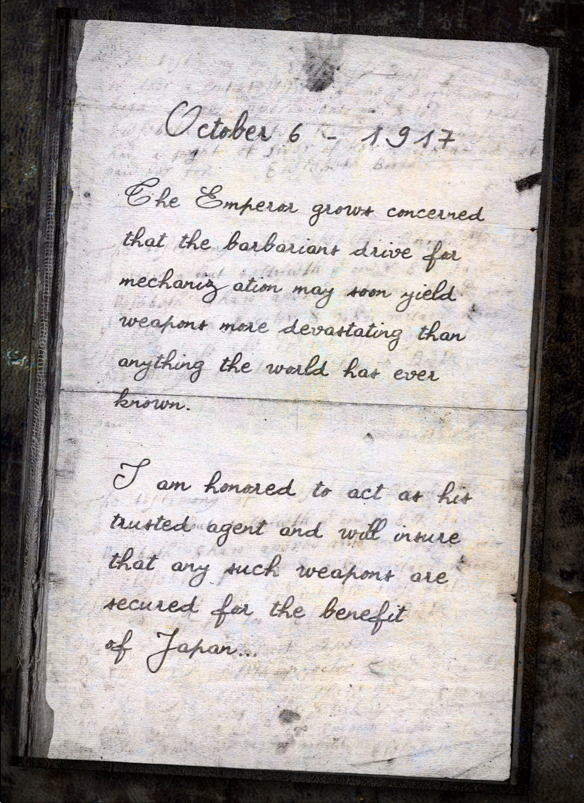 October 6 - 1917
The Emperor grows concerned
that the barbarians drive for
mechaniz ation may soon yield
weapons more devastating than
anything the world has ever
known.
I am honored to act as his
trusted agent and will insure
that any such weapons are
secured for the benefit
of Japan...